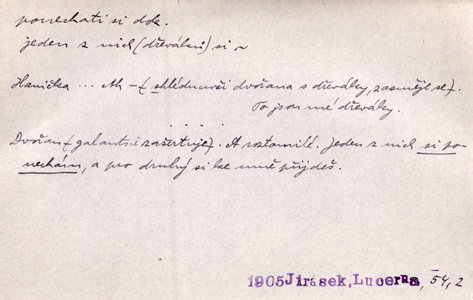 ponechati si dok.
jeden z nich (dřeváků) si ~
Hanička ... Ah - { shlédnuvši dvořana s dřeváky, zasměje se }.
To jsou mé dřeváky.
. . . . . .
Dvořan { galantně zažertuje }. A roztomilé. Jeden z nich si po-
nechám, a pro druhý si ke mně přijdeš.
1905 Jirásek, Lucerna, 54, 2